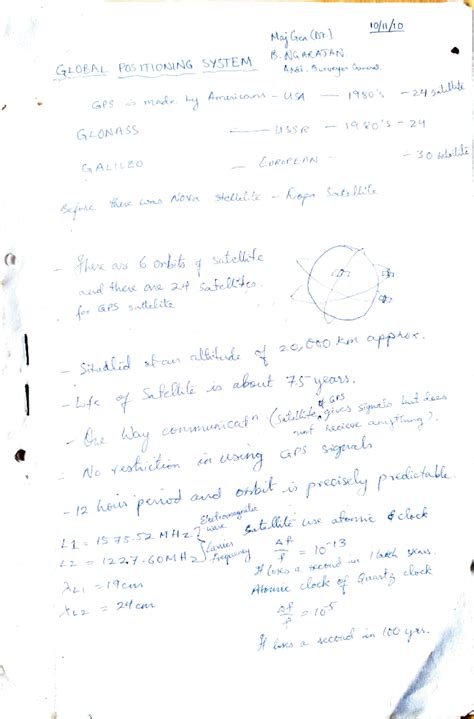 10/11/10
Maj Gen (Dr.)
B. NGARAJAN
Addl. Surveyor General.
GLOBAL POSITIONING SYSTEM
GPS is made by Americans - USA — 1980's - 24 satellite
GLONASS — USSR - 1980's - 24
GALILEO — EUROPEAN - - 30 satellite
Before there was Nova stellite - Satellite
- There are 6 orbits of satellite
and there are 24 satellites
for GPS sattelite
- Situated at an altitude of 20,000 km approx.
- Life of Satellite is about 7.5 years.
- One Way communicatn (Satellite of GPS gives signals but does
not recieve anything).
- No restriction in using GPS signals
- 12 hour period and orbit is precisely predictable.
L1 = 1575.52 MHz
L2 = 1227.60 MHz
Eletromagnatic
wave
Carrier
frequency
λL1 = 19cm
λL2 = 24cm
Satellite use atomic clock
Δf/f = 10-13
It loses a second in 1 lakh years.
Atomic clock of Quartz clock
Δf/f = 10-5
It loses a second in 100 yrs.